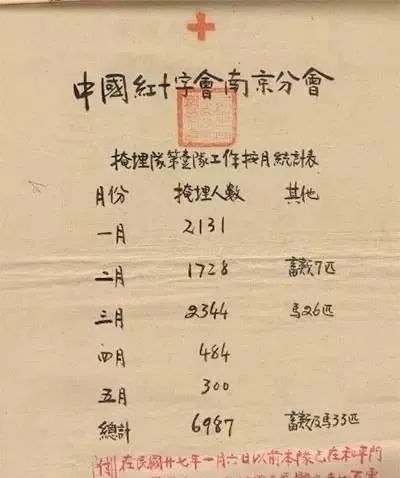 中國紅十字會南京分會
掩埋隊第壹隊工作按月統計表
月份 掩埋人數 其他
一月 2131
二月 1728 畜類7匹
三月 2344 馬26匹
四月 484
五月 300
總計 6987 畜類及馬33匹
附 在民國廿七年一月六日以前本隊已在和平門